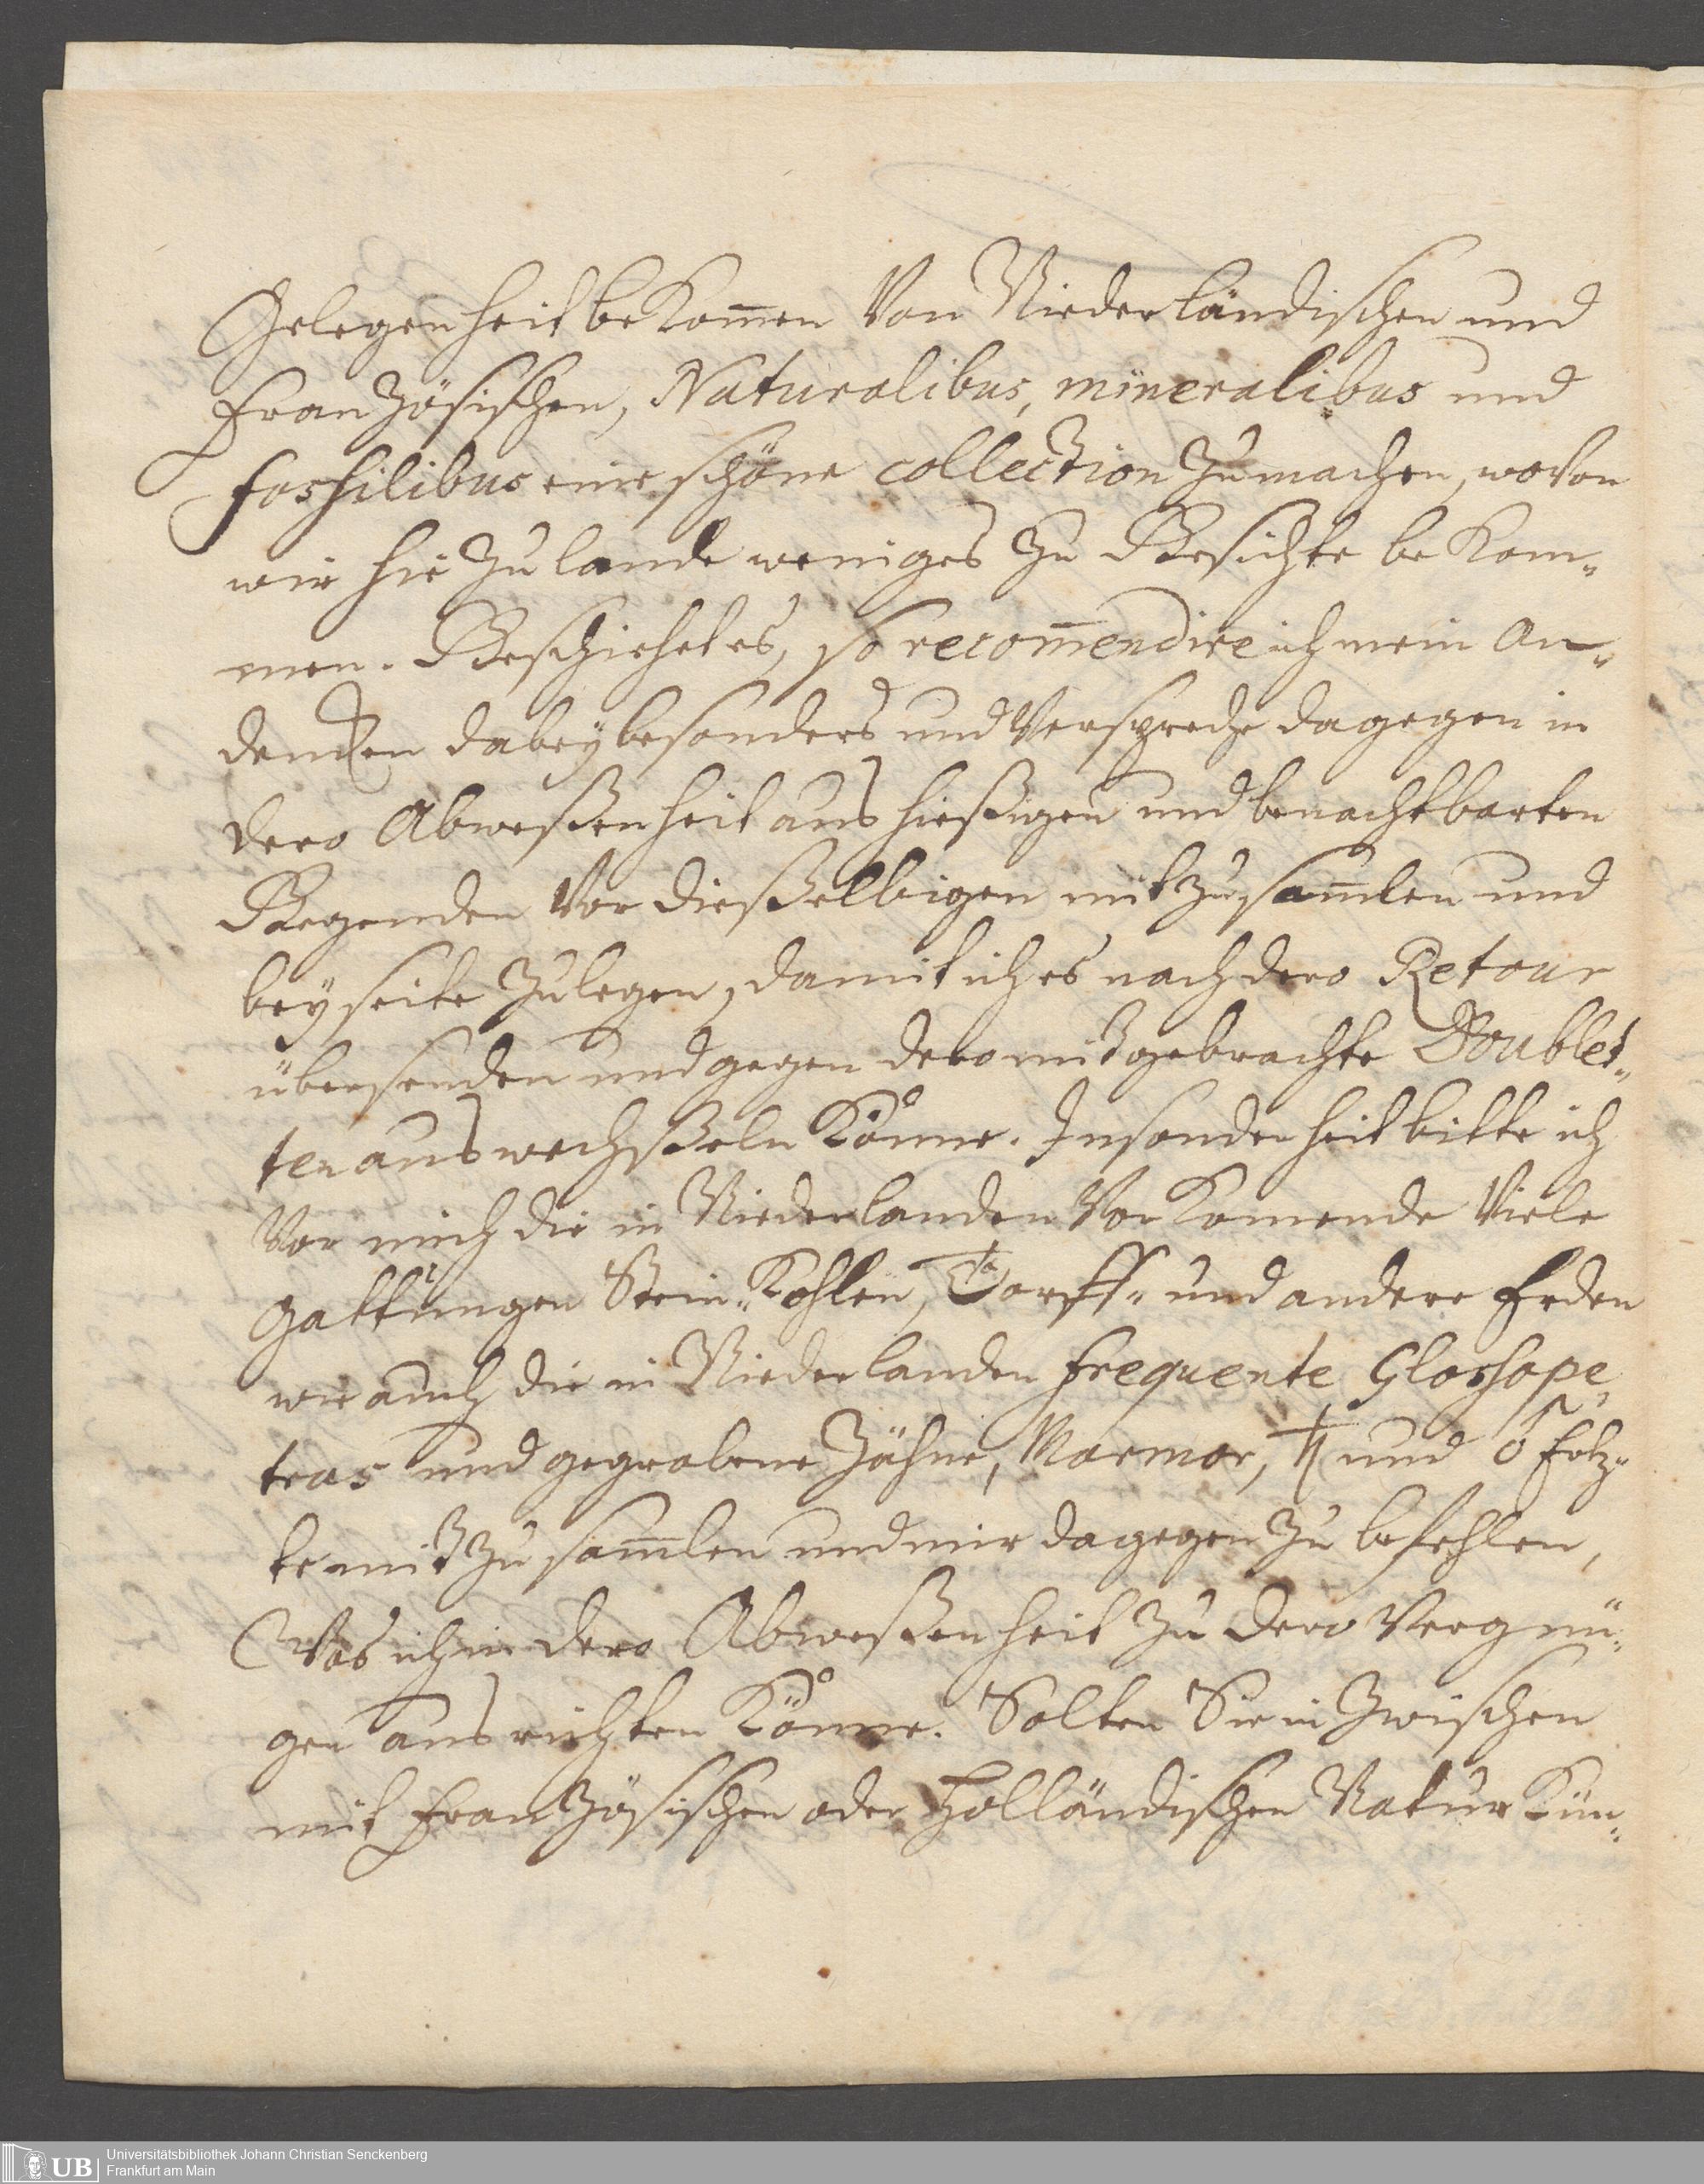 Gelegenheit bekom̅en von Niederländischen und
Französischen, Naturalibus, mineralibus und
fossilibus eine schöne collection zu machen, wovon
wir hie zu lande weniges zu Gesichte bekom„
men. Geschiehet es, so recom̅endire ich mein An„
dencken dabey besonders und verspreche dagegen in
dero Abweßenheit aus hießigen und benachtbarten
Gegenden vor dießelbigen mit zu sam̅len und
bey seite zu legen, damit ich es nach dero Retour
übersenden und gegen dero mitgebrachte Doublet„
ten auswechßeln könne. Insonderheit bitte ich
vor mich die in Niederlanden vorkomende viele
gattungen Stein„Kohlen, Torff„ und andere Erden
wie auch die in Niederlanden frequente Glossope„
tras und gegrabene Zähne, Marmor, ♄ und ♂ Ertz„
te mit zu sam̅len und mir dagegen zu befehlen,
Was ich in dero Abweßenheit zu dero Vergnü„
gen ausrichten könne. Solten Sie in zwischen
mit Französischen oder Holländischen Natur Kün„
UB
Universitätsbibliothek Johann Christian Senckenberg
Frankfurt am Main